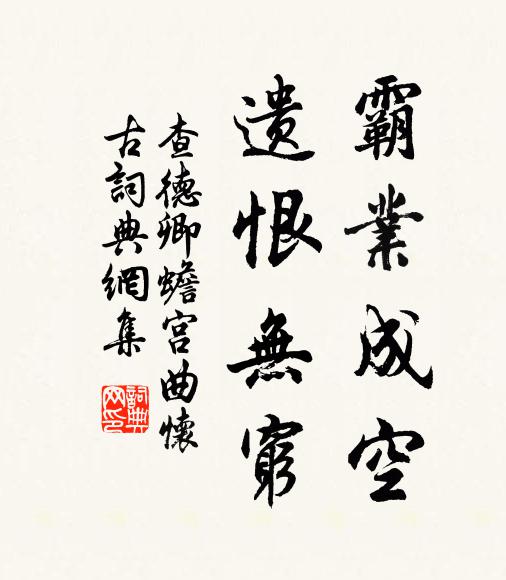 霸業成空
遺恨無窮
查德卿蟾宮曲懷
古詞典網集
詞典
网印